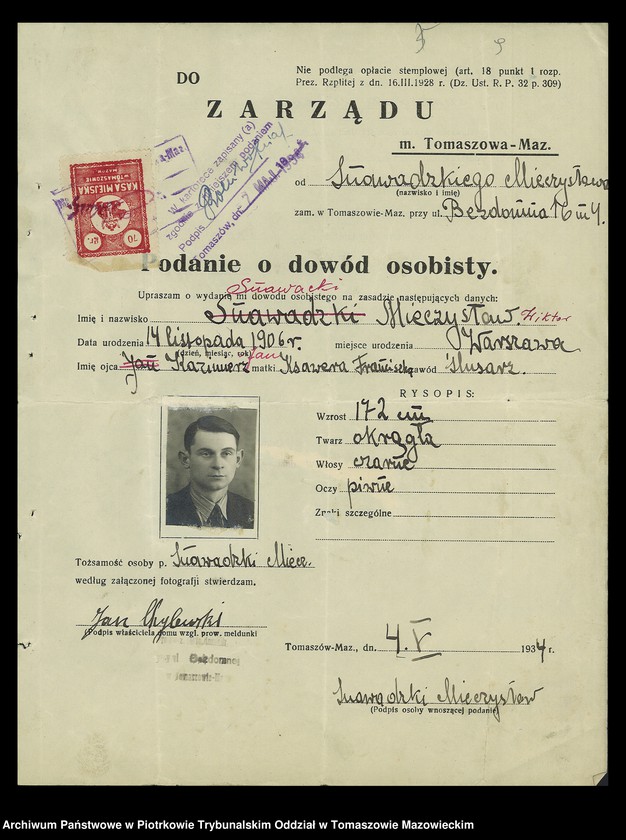 DO
Nie podlega opłacie stemplowej (art. 18 punkt 1 rozp.
Prez. Rzplitej z dn. 16.III.1928 r. (Dz. Ust. R. P. 32 p. 309)
ZARZĄDU
m. Tomaszowa-Maz.
KASA MIEJSKA
W TOMASZOWIE
MAZOW.
70 gr.
W kartotece zapisany (a)
zgodnie z niniejszem podaniem
Podpis
Tomaszów, dn. 7 MAJ 1934
od Suawadzkiego Mieczysława
(nazwisko i imię)
zam. w Tomaszowie-Maz. przy ul. Bezdomna 16 m 4.
Podanie o dowód osobisty.
Upraszam o wydanie mi dowodu osobistego na zasadzie następujących danych:
Suawacki
Imię i nazwisko Suawadzki Mieczysław. Wiktor
Data urodzenia 14 listopada 1906 r. miejsce urodzenia Warszawa
(dzień, miesiąc, rok)
Imię ojca Jan Kazimierz Jan matki Ksawera Franciszka zawód ślusarz.
RYSOPIS:
Wzrost 172 cm
Twarz okrągła
Włosy czarne
Oczy piwne
Znaki szczególne
Tożsamość osoby p. Suawadzki Miecz.
według załączonej fotografji stwierdzam.
Jan Chylewski
(Podpis właściciela domu wzgl. prow. meldunki
Bezdomnej
w Tomaszowie-M
Tomaszów-Maz., dn. 4. V 1934 r.
Suawadzki Mieczysław
(Podpis osoby wnoszącej podanie)
Archiwum Państwowe w Piotrkowie Trybunalskim Oddział w Tomaszowie Mazowieckim